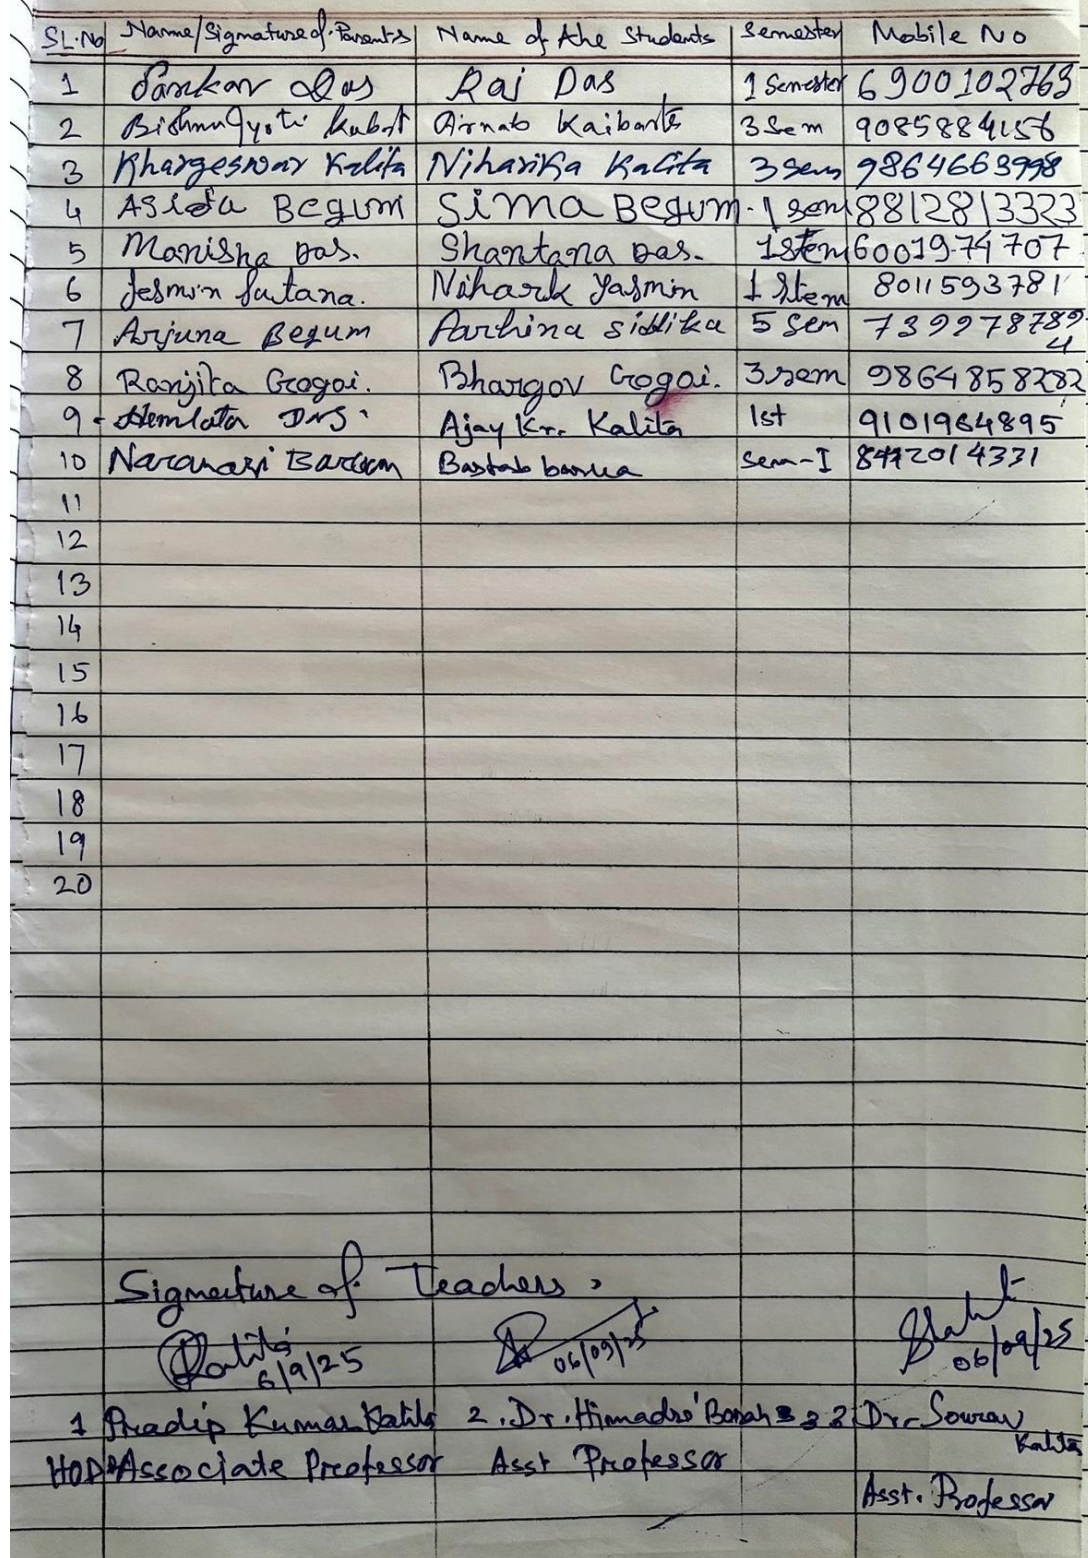 SL.No Name/Signature of Parents Name of the Students Semester Mobile No
1 Sankar Das Raj Das 1 Semester 6900102763
2 Bishnu Jyoti Kaibarta Airnab Kaibarta 3 Sem 9085884156
3 Khargeswar Kalita Niharika Kalita 3 sem 9864663998
4 Begum Sima Begum. 1 sem 8812813323
5 Manisha Das. Shantana Das. 1 stem 6001974707
6 Jesmin Sultana. Nihark Yasmin 1 Stem 8011593781
7 Arjuna Begum Parhina Siddika 5 Sem 7399278789
4
8 Ranjita Gogoi. Bhargov Gogoi. 3 sem 9864858282
9 - Hemlata Das. Ajay Kr. Kalita 1st 9101964895
10 Bastab barua Sem-I
11
12
13
14
15
16
17
18
19
20
Signature of Teachers,
6/9/25 06/09/25 06/09/25
1 Pradip Kumar Kalita 2. Dr. Himadri Borah 3 Dr. Sourav
Kalita
HOD Associate Professor Asst Professor
Asst. Professor